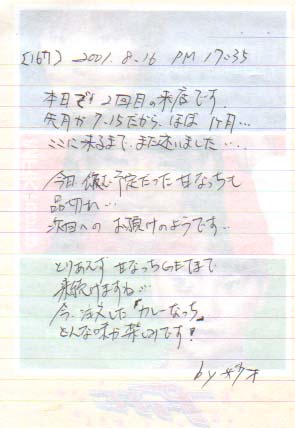 [167] 2001.8.16 PM 17:35
本日で2回目の来店です
先月が7.15だから、ほぼ1ヶ月…
ここに来るまで、また迷いました…
今日頼む予定だった甘なっちも
品切れ…
次回への お預けのようです…
とりあえず 甘なっちGETまで
来続けますね…
今、注文した『カレーなっち』
どんな味か楽しみです!
by